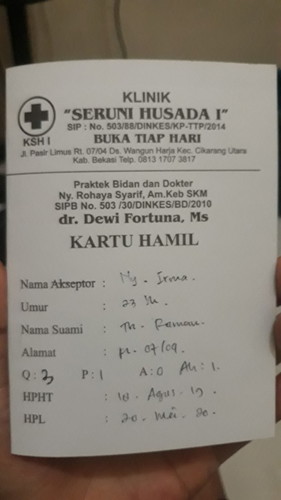 KLINIK
"SERUNI HUSADA I"
SIP : No. 503/88/DINKES/KP-TTP/2014
BUKA TIAP HARI
KSH I
Jl. Pasir Limus Rt. 07/04 Ds. Wangun Harja Kec. Cikarang Utara
Kab. Bekasi Telp. 0813 1707 3817
Praktek Bidan dan Dokter
Ny. Rohaya Syarif, Am.Keb SKM
SIPB No. 503 /30/DINKES/BD/2010
dr. Dewi Fortuna, Ms
KARTU HAMIL
Nama Akseptor : Ny. Irma.
Umur : 23 th.
Nama Suami : Tn.
Alamat : 07/09.
G : 2 P : 1 A : 0 Ah : 1.
HPHT : Agus. 19.
HPL : 20. Mei. 20.